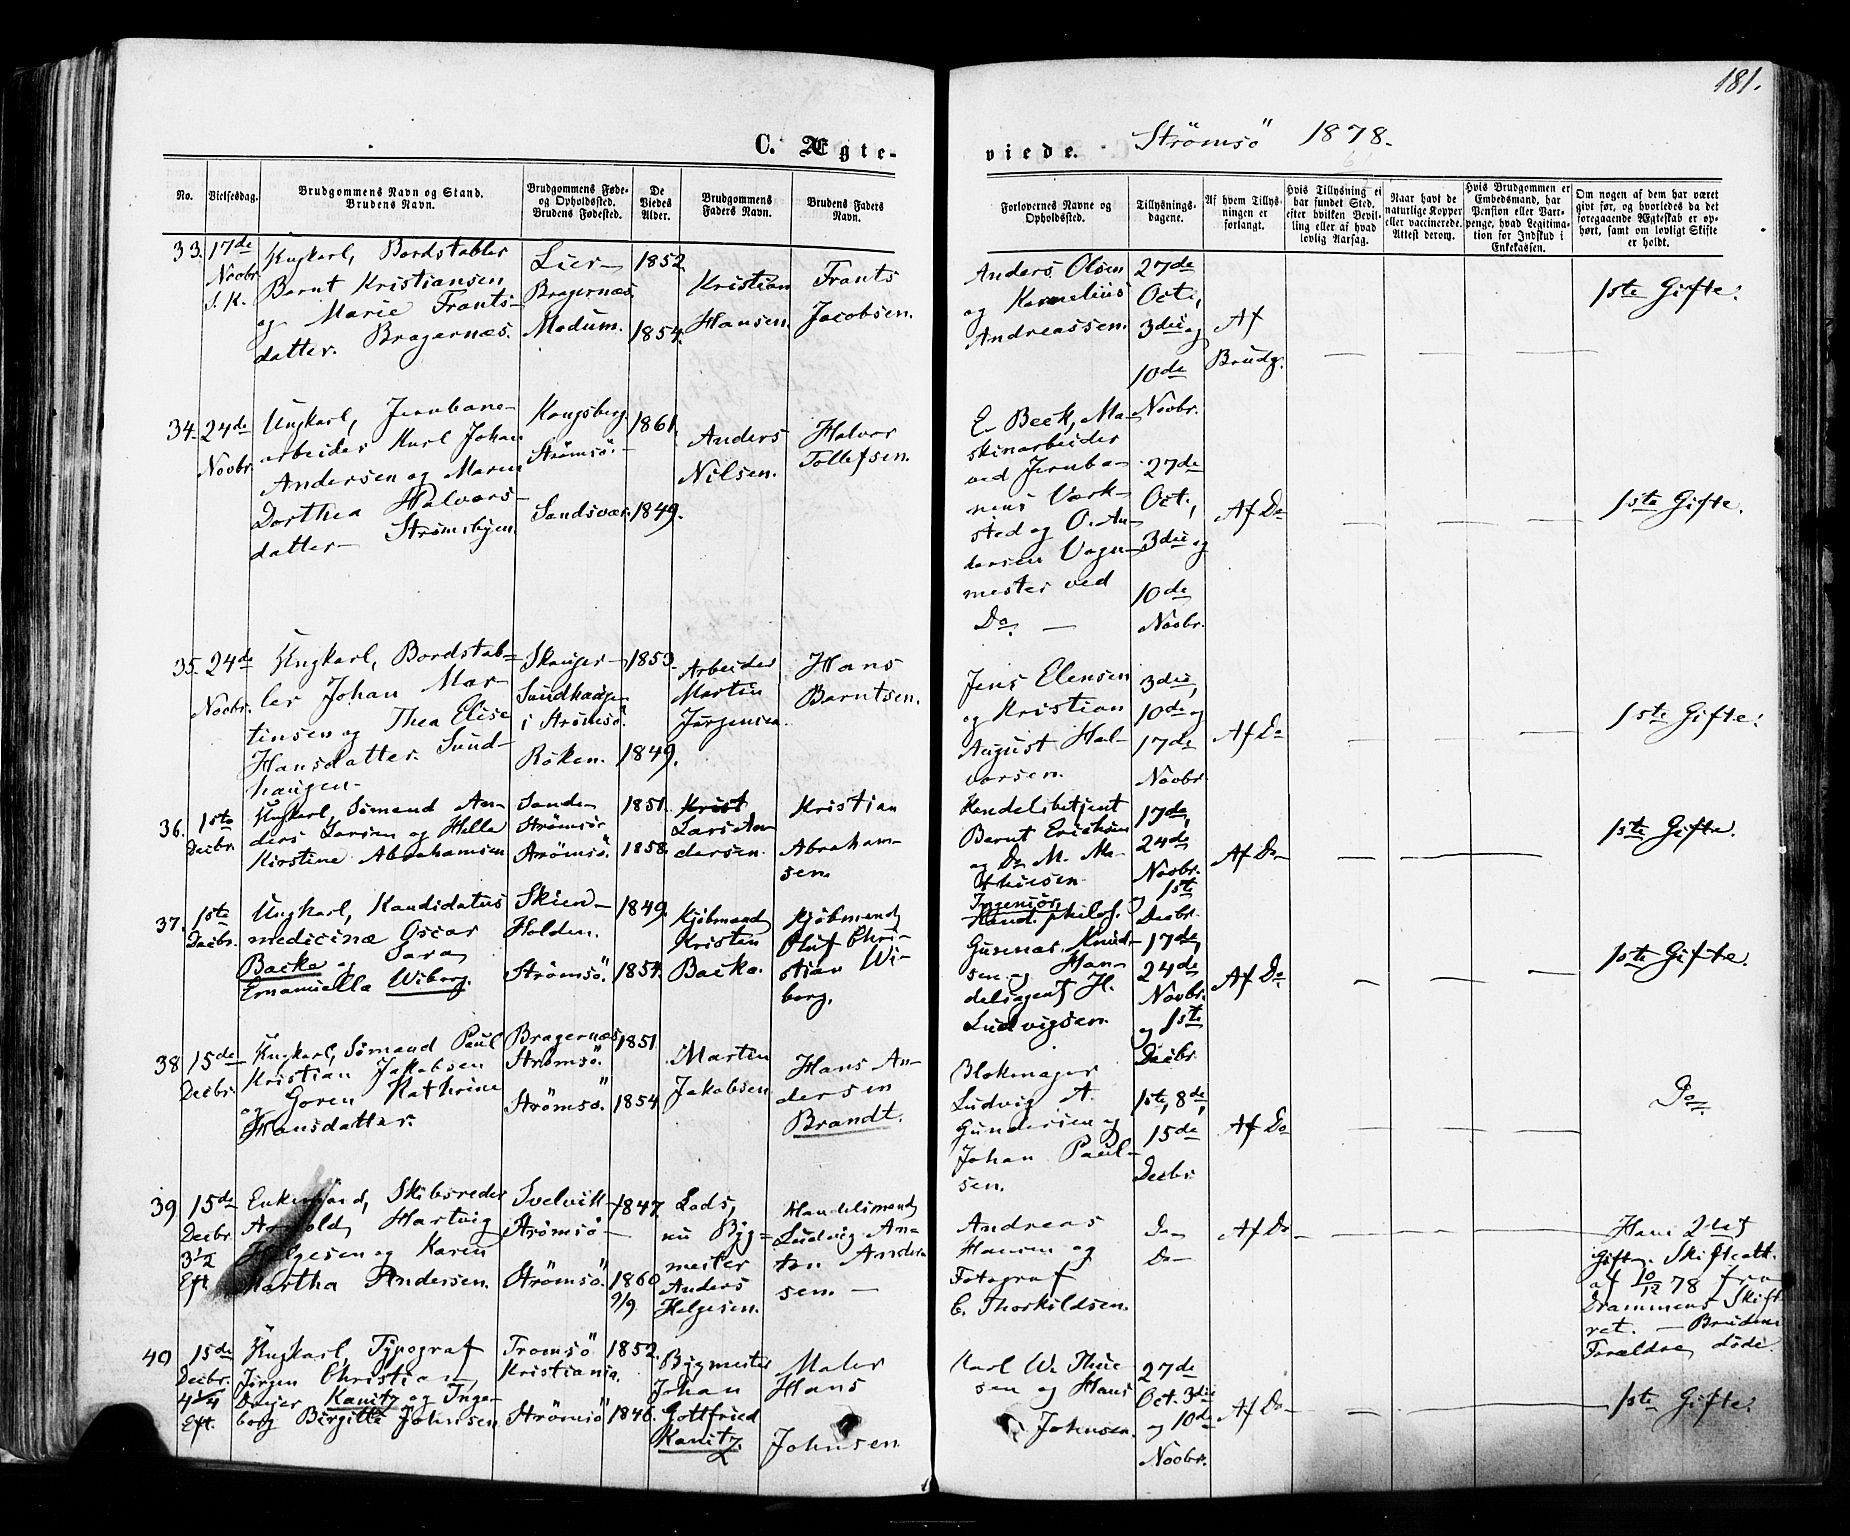 181.
C. Ægte-
viede.
Strömsö 1878.
No.
Vielsesdag.
Brudgommens Navn og Stand.
Brudens Navn.
Brudgommens Føde-
og Opholdssted.
Brudens Fødested.
De
Viedes
Alder.
Brudgommens
Faders Navn.
Brudens Faders
Navn.
Forlovernes Navne og
Opholdssted.
Tillysnings-
dagene.
Af hvem Tillys-
ningen er
forlangt.
Hvis Tillysning ei
har fundet Sted,
efter hvilken Bevil-
ling eller af hvad
lovlig Aarsag.
Naar havt de
naturlige Kopper
eller vaccinerede.
Attest derom.
Hvis Brudgommen er
Embedsmand, har
Pension eller Vart-
penge, hvad Legitima-
tion for Indskud i
Enkekassen.
Om nogen af dem har været
givt før, og hvorledes da det
foregaaende Ægteskab er op-
hørt, samt om lovligt Skifte
er holdt.
33.
17de
Novbr.
S. K.
Ungkarl, Bordstabler
Bernt Kristiansen
og Marie Frants-
datter. Bragernæs.
Lier-
Bragernæs.
Modum.
1852.
1854.
Kristian
Hansen.
Frants
Jacobsen.
Anders Olsen
og Kornelius
Andreassen.
27de
Oct.,
3die og
10de
Novbr.
Af
Brudg.
1ste Gifte.
34.
24de
Novbr.
Ungkarl, Jernbane-
arbeider Karl Johan
Andersen og Maren
Dorthea Halvors-
datter- Strømsbyen.
Kongsberg.
Strømsö.-
Sandsvær.
1861.
1849.
Anders
Nilsen.
Halvor
Tollefsen.
E. Beck, Ma-
skinarbeider
ved Jernba-
nens Værk-
sted og O. An-
dersen Vogn-
mester ved
Do. -
27de
Oct.,
3die og
10de
Novbr.
Af Do
1ste Gifte.
35.
24de
Novbr.
Ungkarl, Bordstab-
ler Johan Mar-
tinsen og Thea Elise
Hansdatter. Sund-
haugen-
Skouger-
Sundhaugen
i Strømsö.
Röken.
1853.
1849.
Arbeider
Martin
Jørgensen.
Hans
Berntsen.
Jens Elensen
og Kristian
August Hal-
vorsen.
3die,
10de og
17de
Novbr.
Af Do
1ste Gifte.
36.
1ste
Decbr.
Ungkarl, Sömand An-
ders Larsen og Helle
Kirstine Abrahamsen
Sande-
Strømsö
Strømsö.
1851.
1858.
Krist
Lars An-
dersen.
Kristian
Abraham-
sen.
Handelsbetjent
Bernt Erichsen
og Do M. Ma-
thiesen
17de,
24de
Novbr.
1ste
Decbr.
Af Do-
1ste Gifte.
37.
1ste
Decbr.
Ungkarl, Kandidatus
medicinæ Oscar
Backe og Sara
Emanuella Wiborg.
Skien-
Holden.
Strømsö.
1849.
1854.
Kjöbmand
Kristen
Backe.
Kjöbmand
Oluf Chri-
stian Wi-
borg.
Ingeniör,
Kand. philos.
Gunnar Knud-
sen og Han-
delsagent H.
Ludvigsen.
17de,
24de
Novbr.
og 1ste
Decbr.
Af Do
1ste Gifte.
38
15de
Decbr.
Ungkarl, Sömand Paul
Kristian Jakobsen
og Goren Kathrine
Hansdatter.
Bragernæs
Strømsö.
Strømsö.
1851.
1854
Martin
Jakobsen
Hans An-
dersen
Brandt.
Blokmager
Ludvig A.
Gundersen og
Johan Paul-
sen.
1ste, 8de,
15de
Decbr.
Af Do
Do.
39
15de
Decbr.
3½
Eft
Enkemand, Skibsreder
Arnold Hartvig
Helgesen og Karen
Martha Andersen.
Svelvik-
Strømsö-
Strømsö.
1847.
1860
9/9.
Lods,
nu Byg-
mester
Anders
Helgesen.
Handelsmand
Ludvig An-
ton Ander-
sen.-
Andreas
Hansen og
Fotograf
C. Thorkildsen.
Do
Do-
Af Do-
Ham 2det
Gifte. Skifteatt.
af 10/12 78 fra
Drammens Skift
ret. - Brudens
Forældre døde.
40
15de
Decbr.
4¼
Eft.
Ungkarl, Typograf
Jørgen Christian
Dreier Kanitz og Inge-
borg Birgitte Johnsen
Tromsö
Kristiania.
Strømsö
1852.
1846.
Bygmester
Johan
Gottfried
Kanitz.
Maler
Hans
Johnsen
Karl W. Thue-
sen og Hans
Johnsen.
27de
Oct. 3die
og 10de
Novbr.
Af Do-
1ste Gifte.